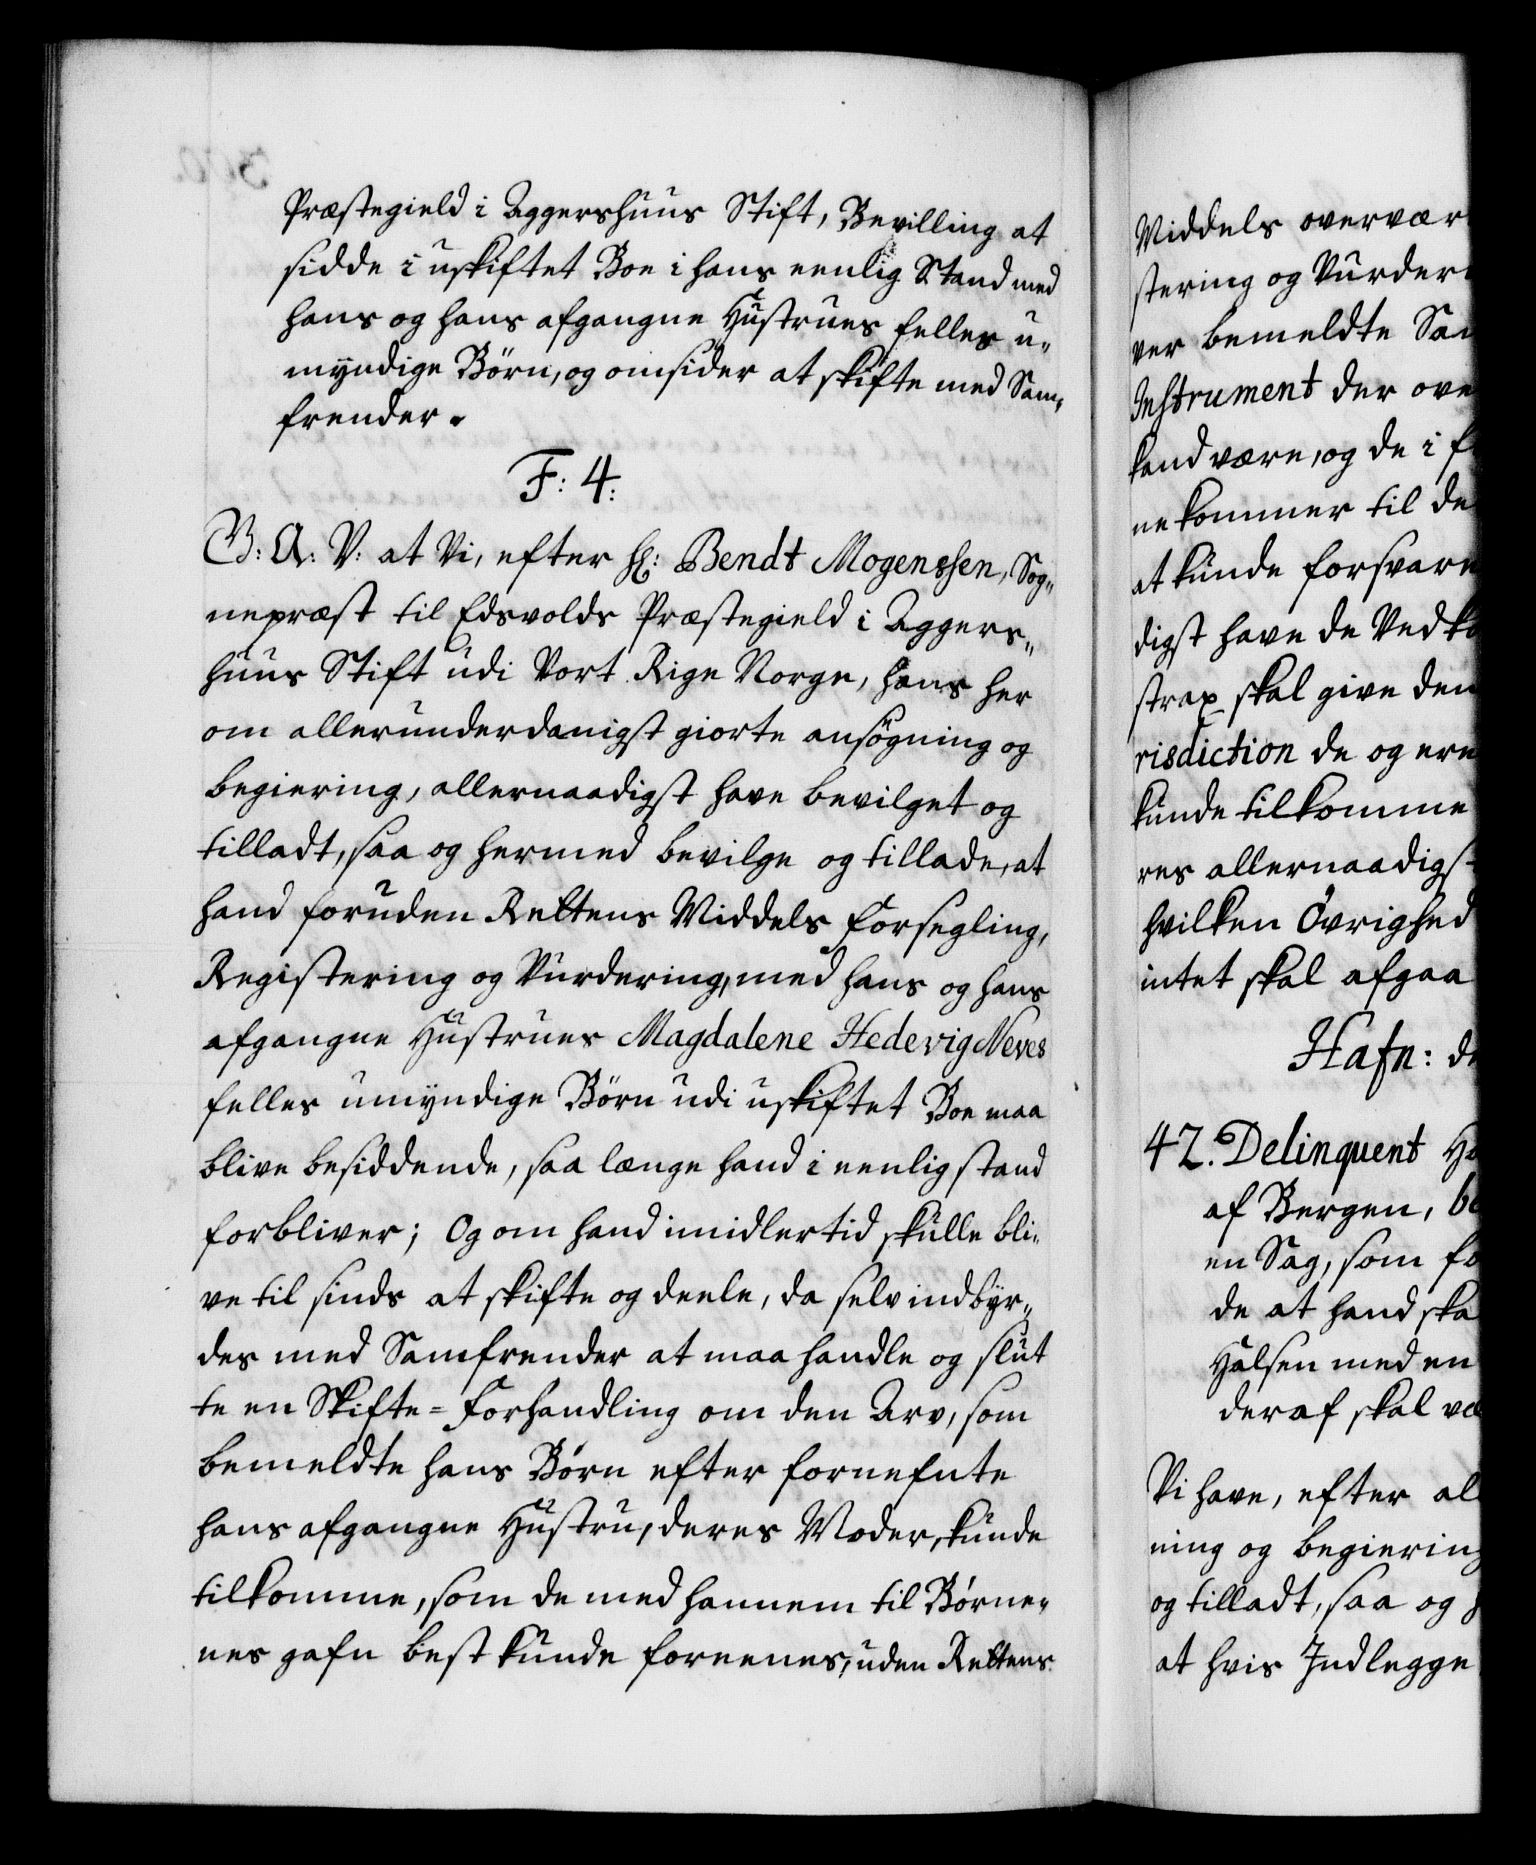 Præstegield i Aggershuus Stift, Bevilling at
sidde i uskiftet Boe i hans eenlig Stand med
hans og hans afgangne Hustrues felles u-
myndige Børn, og omsider at skifte med Sam-
frender.
F: 4:
G: A: V: at Vi, efter Hr: Bendt Mogenssen, Sog-
nepræst til Edsvolds Præstegield i Aggers-
huus Stift udi Vort Rige Norge, hans her
om allerunderdanigst giorte ansøgning og
begiering, allernaadigst have bevilget og
tilladt, saa og hermed bevilge og tillade, at
hand foruden Rettens Middels Forsegling,
Registering og Vurdering, med hans og hans
afgangne Hustrues Magdalene Hedevig Neves
felles umyndige Børn udi uskiftet Boe maa
blive besiddende, saa længe hand i eenlig stand
forbliver; Og om hand imidlertid skulle bli-
ve til sinds at skifte og deele, da selv indbyr-
des med Samfrender at maa handle og slut
te en Skifte-Forhandling om den Arv, som
bemeldte hans Børn efter fornefnte
hans afgangne Hustru, deres Moder, kunde
tilkomme, som de med hannem til Børne-
nes gafn best kunde foreenes, uden Rettens
Middels overvær
stering og Vurder
ver bemeldte Sam
Instrument der ove
kand være, og de i f
ne kommer til de
at kunde forsvare
digst have de Vedko
strax skal give dem
risdiction de og ere
kunde tilkomme
res allernaadigst
hvilken Øvrighed
intet skal afgaa
Hafn: d
42. Delinquent Ha
af Bergen, be
en Sag, som fo
de at hand ska
Halsen med en
deraf skal væ
Vi have, efter al
ning og begiering
og tilladt, saa og h
at hvis Indlegge